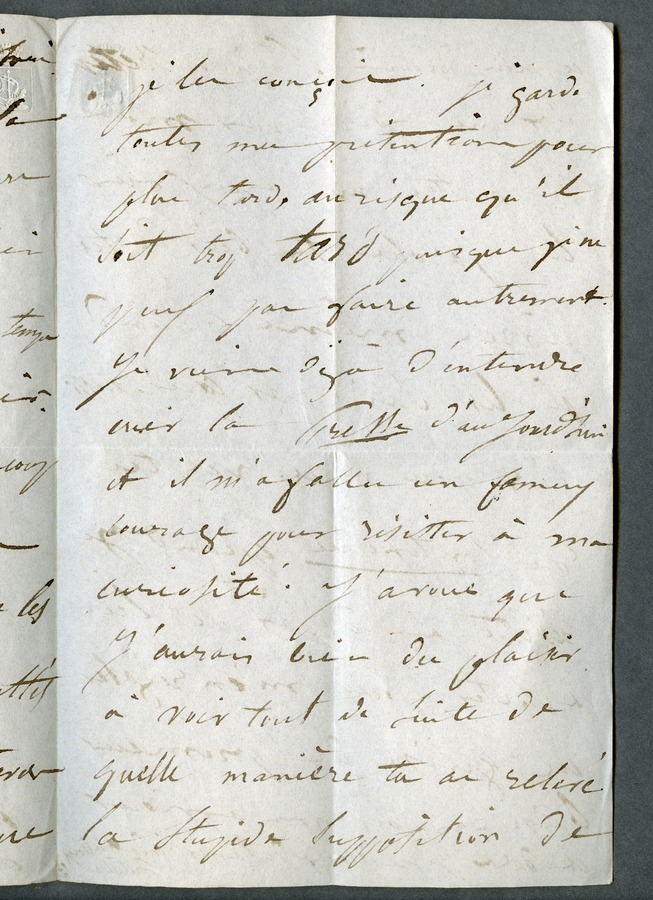 je les conçois. je garde
toutes mes prétentions pour
plus tard, au risque qu'il
soit trop tard puisque je ne
peux pas faire autrement.
Je viens déjà d'entendre
crier la Presse d'aujourd'hui
et il m'a fallu un fameux
courage pour résister à ma
curiosité! J'avoue que
J'aurais bien du plaisir
à voir tout de suite de
quelle manière tu as relevé
la stupide supposition de